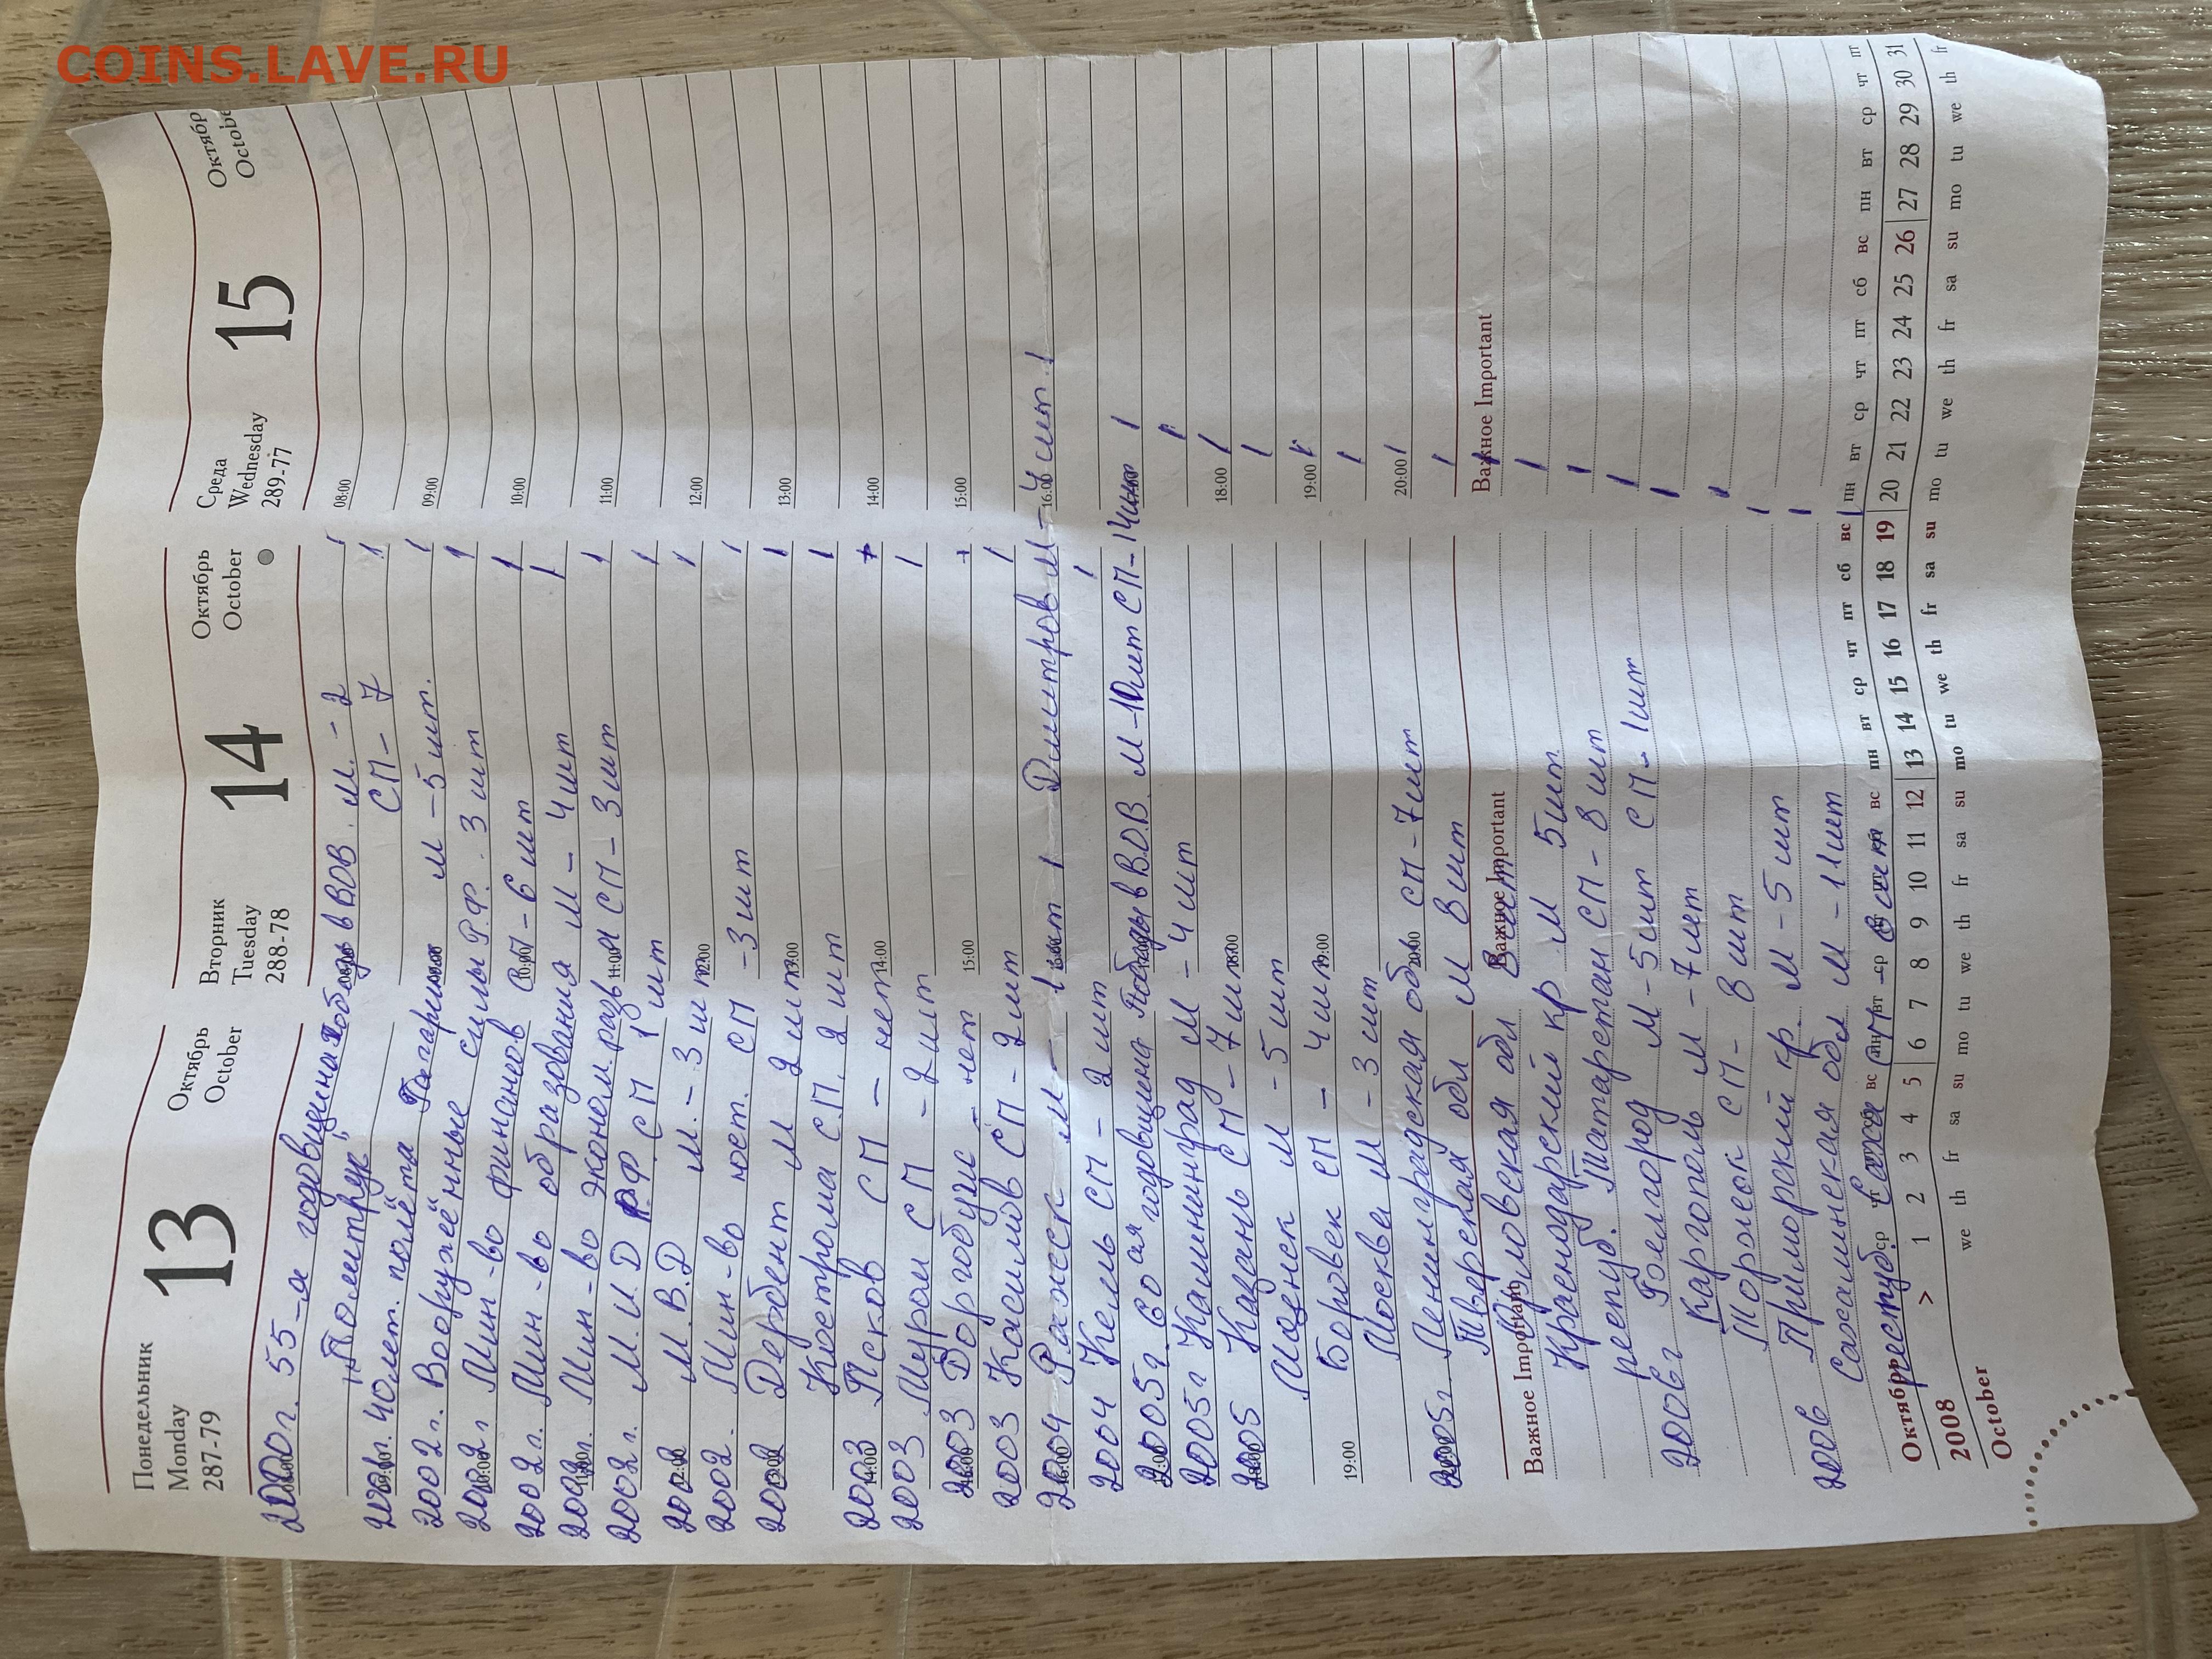 COINS.LAVE.RU
Понедельник Октябрь Вторник Октябрь Среда Октябр
Monday October Tuesday October Wednesday Octobe
287-79 13 288-78 14 289-77 15
2000г. 55-я годовщина Победы в ВОВ. М. - 2
"Политрук" СП - 7
2001г. 40 лет. полёта Гагарин М - 5 шт.
2002г. Вооружённые силы Р.Ф. 3 шт
2002г Мин-во финансов СП - 6 шт
2002г. Мин-во образования М - 4 шт
2002г. Мин-во эконом. разв СП - 3 шт
2002г. М.И.Д Р.Ф. СП 1 шт
2002 М.В.Д М. - 3 шт
2002. Мин-во юст. СП - 3 шт
2002 Дербент М 2 шт
Кострома С.П. 2 шт
2003 Псков СП - нет
2003 Муром СП - 2 шт
2003 Дорогобуж - нет
2003 Касимов СП - 2 шт
2004 Ряжск М - 1 шт 1 Дмитров М - 4 шт. 1
2004 Кемь СП - 2 шт
2005г 60 ая годовщина Победы в В.О.В. М - 10 шт СП - 14 шт
2005г Калининград М - 4 шт
2005 Казань СП - 7 шт
Мценск М - 5 шт
Боровск СП - 4 шт
Москва М - 3 шт
2005г. Ленинградская об СП - 7 шт
Тверская обл М 8 шт
Орловская обл 8 шт
Краснодарский кр. М 5 шт
респуб. Татарстан СП - 8 шт
2006г Белгород М - 5 шт СП - 1 шт
Каргополь М - 7 шт
Торжок СП - 8 шт
2006 Приморский кр. М - 5 шт
Сахалинская обл М - 11 шт
респуб. Саха
08:00
09:00
10:00
11:00
12:00
13:00
14:00
15:00
16:00
18:00
19:00
20:00
Важное Important Важное Important Важное Important
Октябрь ср чт вс вт ср вс пн вт ср чт пт сб вс пн вт ср чт пт сб вс пн вт ср чт пт
2008 > 1 2 3 4 5 6 7 8 9 10 11 12 13 14 15 16 17 18 19 20 21 22 23 24 25 26 27 28 29 30 31
October we th fr sa su mo tu we th fr sa su mo tu we th fr sa su mo tu we th fr sa su mo tu we th fr